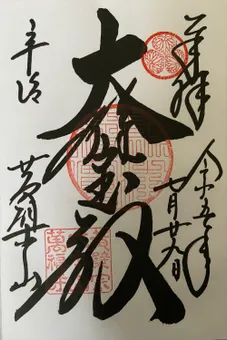 奉拝
令和五年
七月廿八日
大雄宝殿
宇治
黄檗山
萬福寺